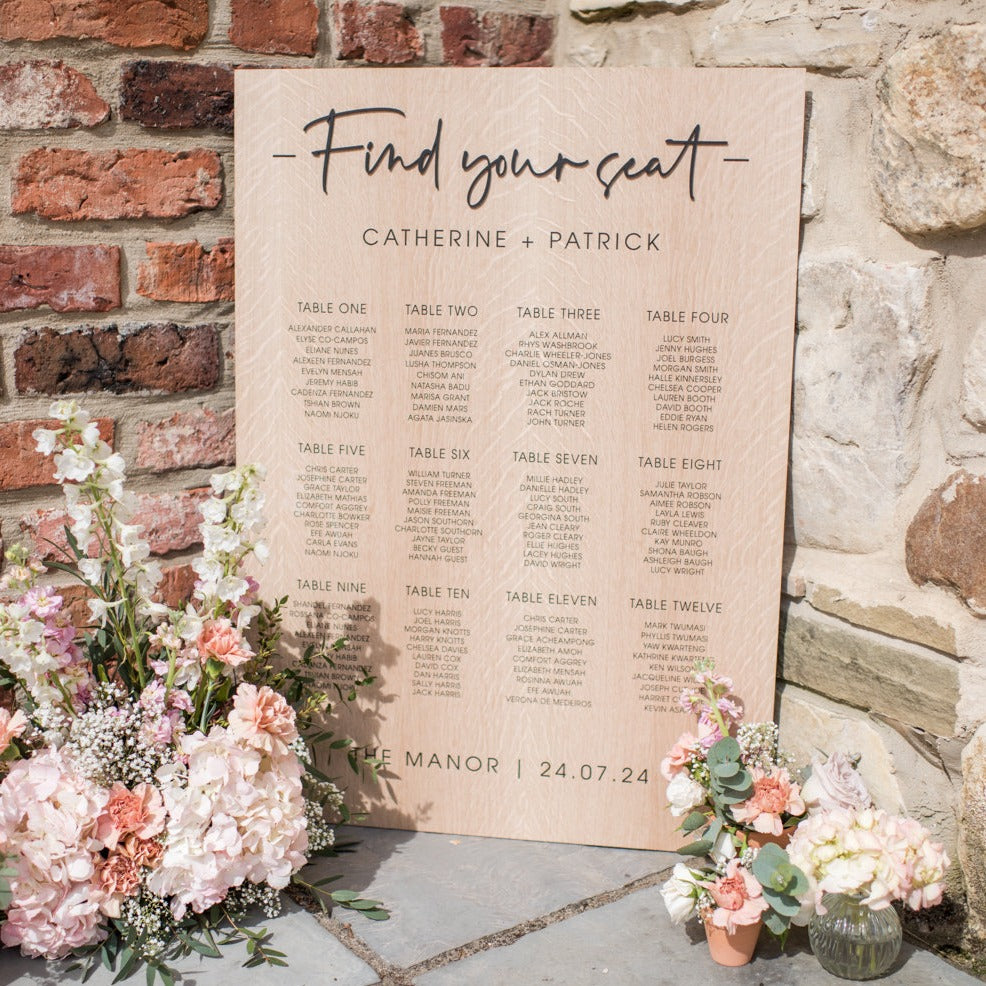 Find your seat
CATHERINE + PATRICK
TABLE ONE
ALEXANDER CALLAHAN
ELYSE CO-CAMPOS
ELIANE NUNES
ALEXEEN FERNANDEZ
EVELYN MENSAH
JEREMY HABIB
CADENZA FERNANDEZ
TSHIAN BROWN
NAOMI NJOKU
TABLE TWO
MARIA FERNANDEZ
JAVIER FERNANDEZ
JUANES BRUSCO
LUSHA THOMPSON
CHISOM ANI
NATASHA BADU
MARISA GRANT
DAMIEN MARS
AGATA JASINSKA
TABLE THREE
ALEX ALLMAN
RHYS WASHBROOK
CHARLIE WHEELER-JONES
DANIEL OSMAN-JONES
DYLAN DREW
ETHAN GODDARD
JACK BRISTOW
JACK ROCHE
RACH TURNER
JOHN TURNER
TABLE FOUR
LUCY SMITH
JENNY HUGHES
JOEL BURGESS
MORGAN SMITH
HALLE KINNERSLEY
CHELSEA COOPER
LAUREN BOOTH
DAVID BOOTH
EDDIE RYAN
HELEN ROGERS
TABLE FIVE
CHRIS CARTER
JOSEPHINE CARTER
GRACE TAYLOR
ELIZABETH MATHIAS
COMFORT AGGREY
CHARLOTTE BOWKER
ROSE SPENCER
EFE AWUAH
CARLA EVANS
NAOMI NJOKU
TABLE SIX
WILLIAM TURNER
STEVEN FREEMAN
AMANDA FREEMAN
POLLY FREEMAN
MAISIE FREEMAN
JASON SOUTHORN
CHARLOTTE SOUTHORN
JAYNE TAYLOR
BECKY GUEST
HANNAH GUEST
TABLE SEVEN
MILLIE HADLEY
DANIELLE HADLEY
LUCY SOUTH
CRAIG SOUTH
GEORGINA SOUTH
JEAN CLEARY
ROGER CLEARY
ELLIE HUGHES
LACEY HUGHES
DAVID WRIGHT
TABLE EIGHT
JULIE TAYLOR
SAMANTHA ROBSON
AIMEE ROBSON
LAYLA LEWIS
RUBY CLEAVER
CLAIRE WHEELDON
KAY MUNRO
SHONA BAUGH
ASHLEIGH BAUGH
LUCY WRIGHT
TABLE NINE
SHANDEL FERNANDEZ
ROSSANA CO-CAMPOS
ELIANE NUNES
ALEXEEN FERNANDEZ
HABIB
CADENZA FERNANDEZ
BROWN
TABLE TEN
LUCY HARRIS
JOEL HARRIS
MORGAN KNOTTS
HARRY KNOTTS
CHELSEA DAVIES
LAUREN COX
DAVID COX
DAN HARRIS
SALLY HARRIS
JACK HARRIS
TABLE ELEVEN
CHRIS CARTER
JOSEPHINE CARTER
GRACE ACHEAMPONG
ELIZABETH AMOH
COMFORT AGGREY
ELIZABETH MENSAH
ROSINNA AWUAH
EFE AWUAH
VERONA DE MEDEIROS
TABLE TWELVE
MARK TWUMASI
PHYLLIS TWUMASI
YAW KWARTENG
KATHRINE KWARTENG
KEN WILSON
JACQUELINE
JOSEPH
HARRIET
KEVIN
THE MANOR | 24.07.24